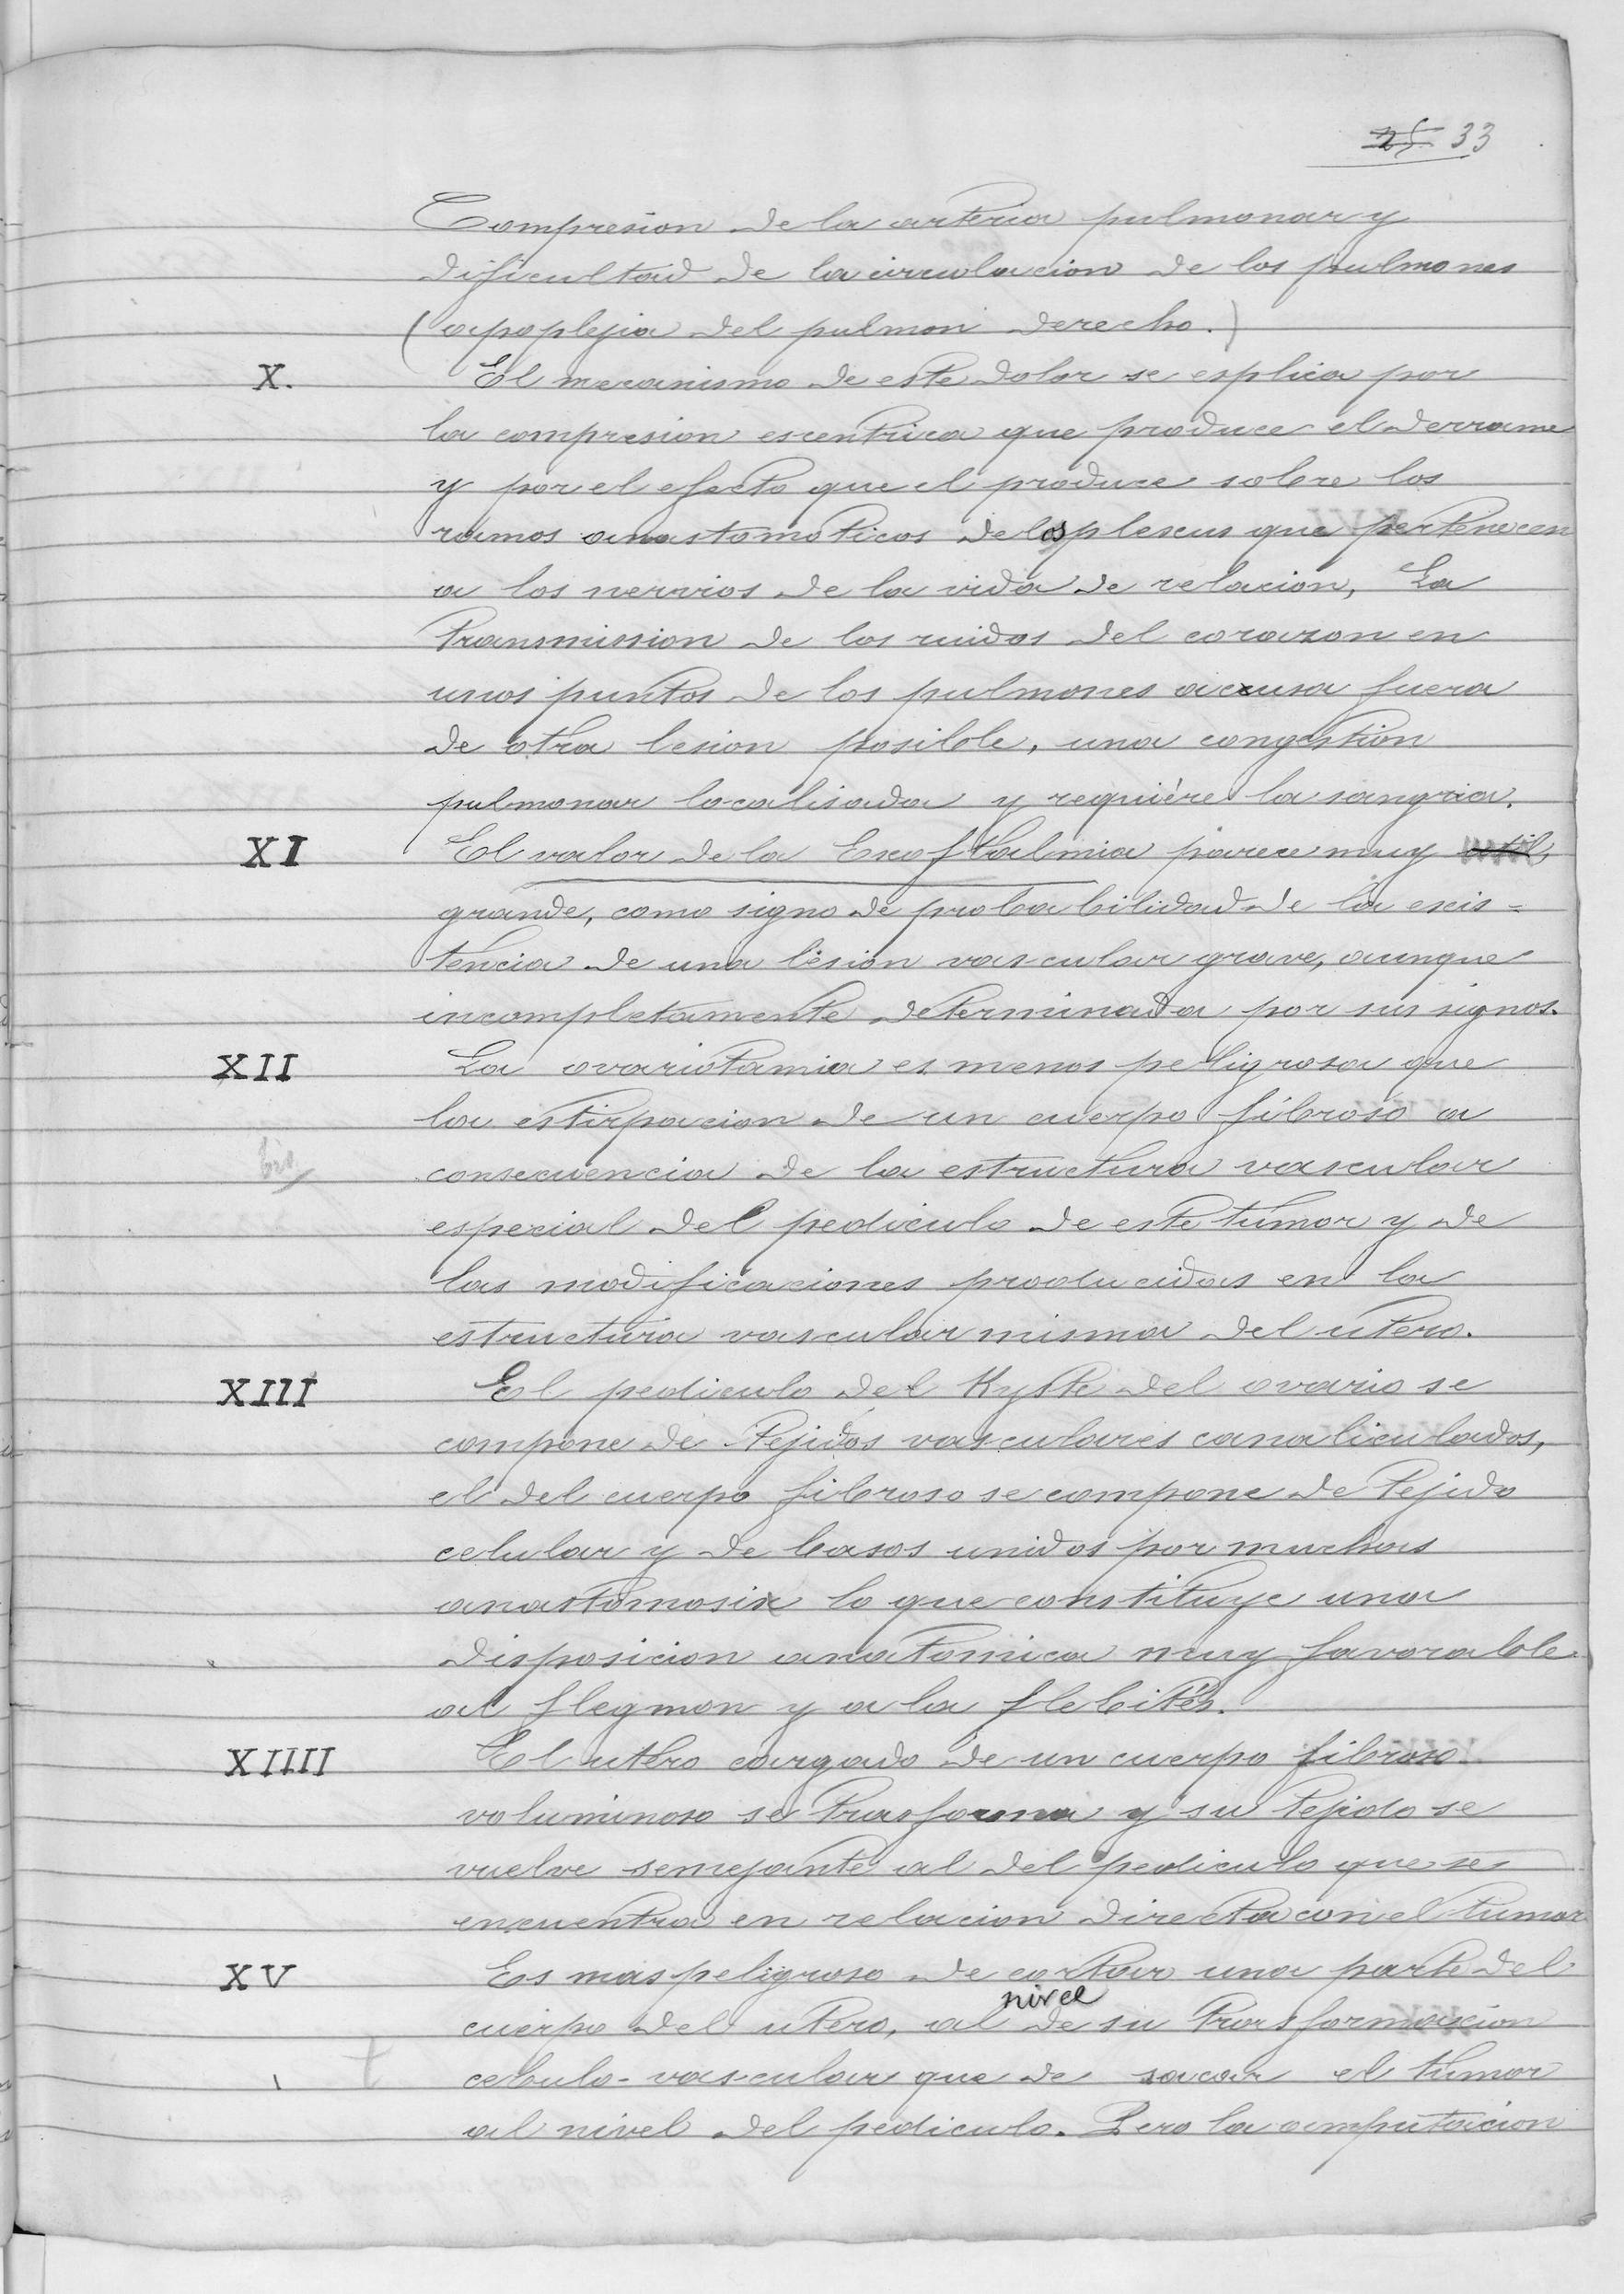 25 33
Compresion de la arteria pulmonar y
dificultad de la circulacion de los pulmones
(apoplejia del pulmon derecho.)
X. El mecanismo de este dolor se esplica por
la compresion escentrica que produce el derrame
y por el efecto que el produce sobre los
ramos anastomoticos de los plexus que pertenecen
a los nervios de la vida de relacion, La
transmission de los ruidos del corazon en
unos puntos de los pulmones acusa fuera
de otra lesion posible, una congestion
pulmonar localisada y requiére la sangria.
XI El valor de la Exofthalmia parece muy util,
grande, como signo de probabilidad de la exis-
tencia de una lesion vascular grave, aunque
incompletamente determinada por sus signos.
XII La ovariotamia es menos peligrosa que
la estirpacion de un cuerpo fibroso a
consecuencia de la estructura vascular
especial del pediculo de este tumor y de
las modificaciones producidas en la
estructura vascular misma del utero.
XIII El pediculo del Kyste del ovario se
compone de tejidos vasculares canaliculados,
el del cuerpo fibroso se compone de tejido
celular y de basos unidos por muchas
anastomosis lo que constituye una
disposicion anatomica muy favorable
al flegmon y a la flebites.
XIIII El utero cargado de un cuerpo fibroso
voluminoso se trasforma y su tejido se
vuelve semejante al del pediculo que se
encuentra en relacion directa con el tumor
XV Es mas peligroso de cortar una parte del
cuerpo del utero, al nivel de su transformacion
celulo-vascular que de sacar el tumor
al nivel del pediculo. Pero la amputacion